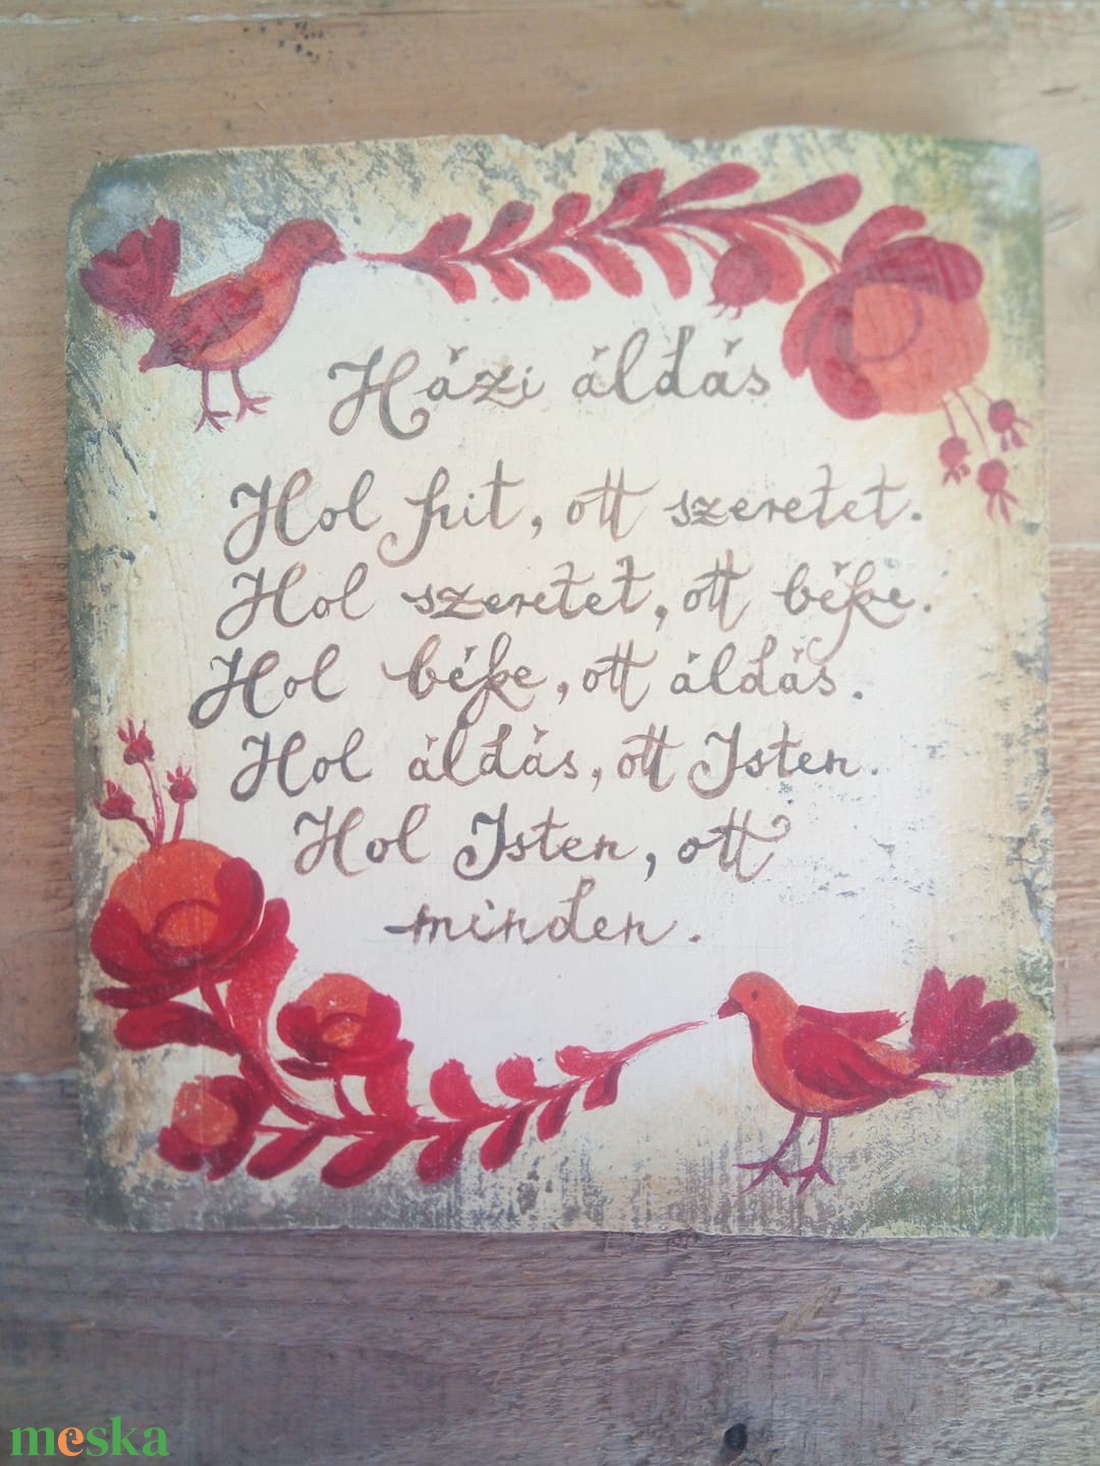 Házi áldás
Hol hit, ott szeretet.
Hol szeretet, ott béke.
Hol béke, ott áldás.
Hol áldás, ott Isten.
Hol Isten, ott
minden.
meska